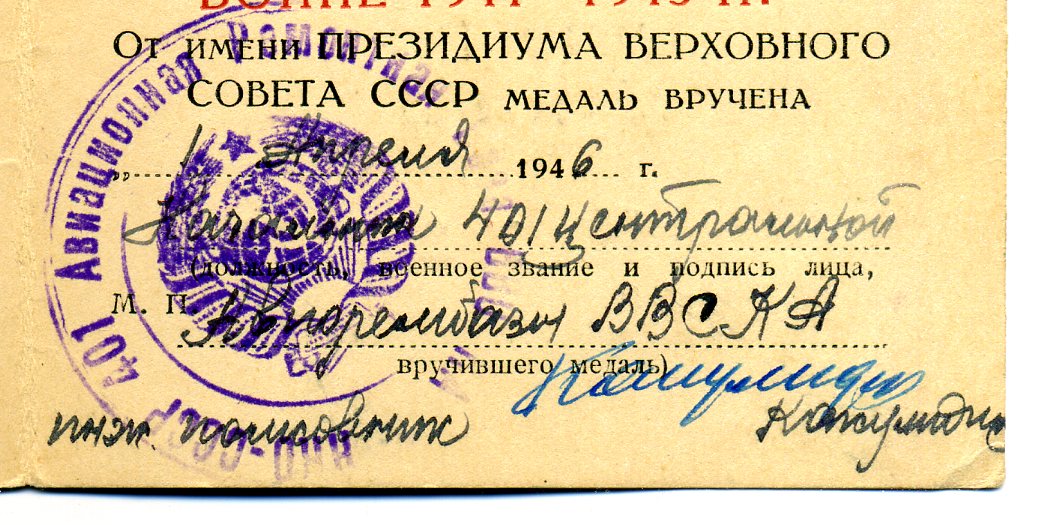 ВОЙНЕ 1941—1945 гг.
От имени ПРЕЗИДИУМА ВЕРХОВНОГО
СОВЕТА СССР МЕДАЛЬ ВРУЧЕНА
„ 1 Апреля 1946 г.
Начальник 401 Центральной
(должность, военное звание и подпись лица,
М. П. Авиарембазы ВВС КА
вручившего медаль)
инж. полковник
401 Авиационная Ремонтная